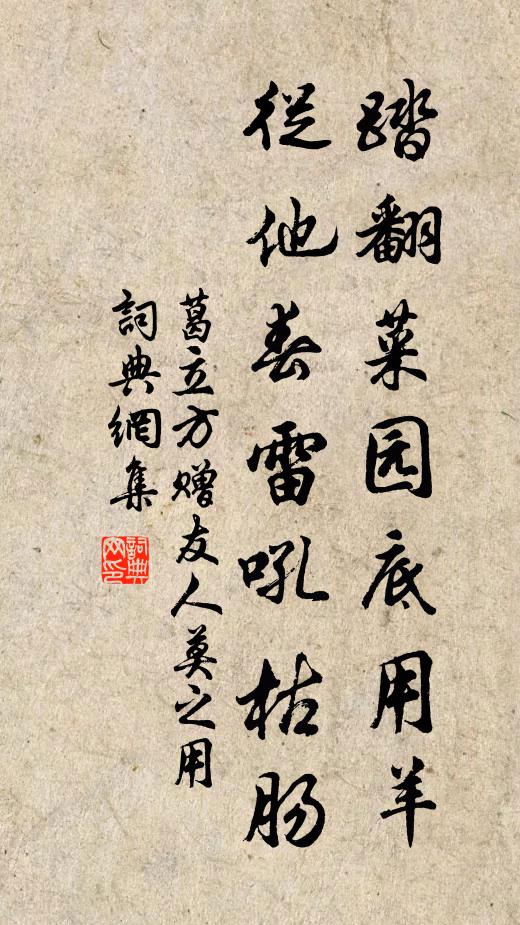 踏翻菜园底用羊
從他春雷吼枯肠
葛立方赠友人莫之用
詞典網集
詞典
网印